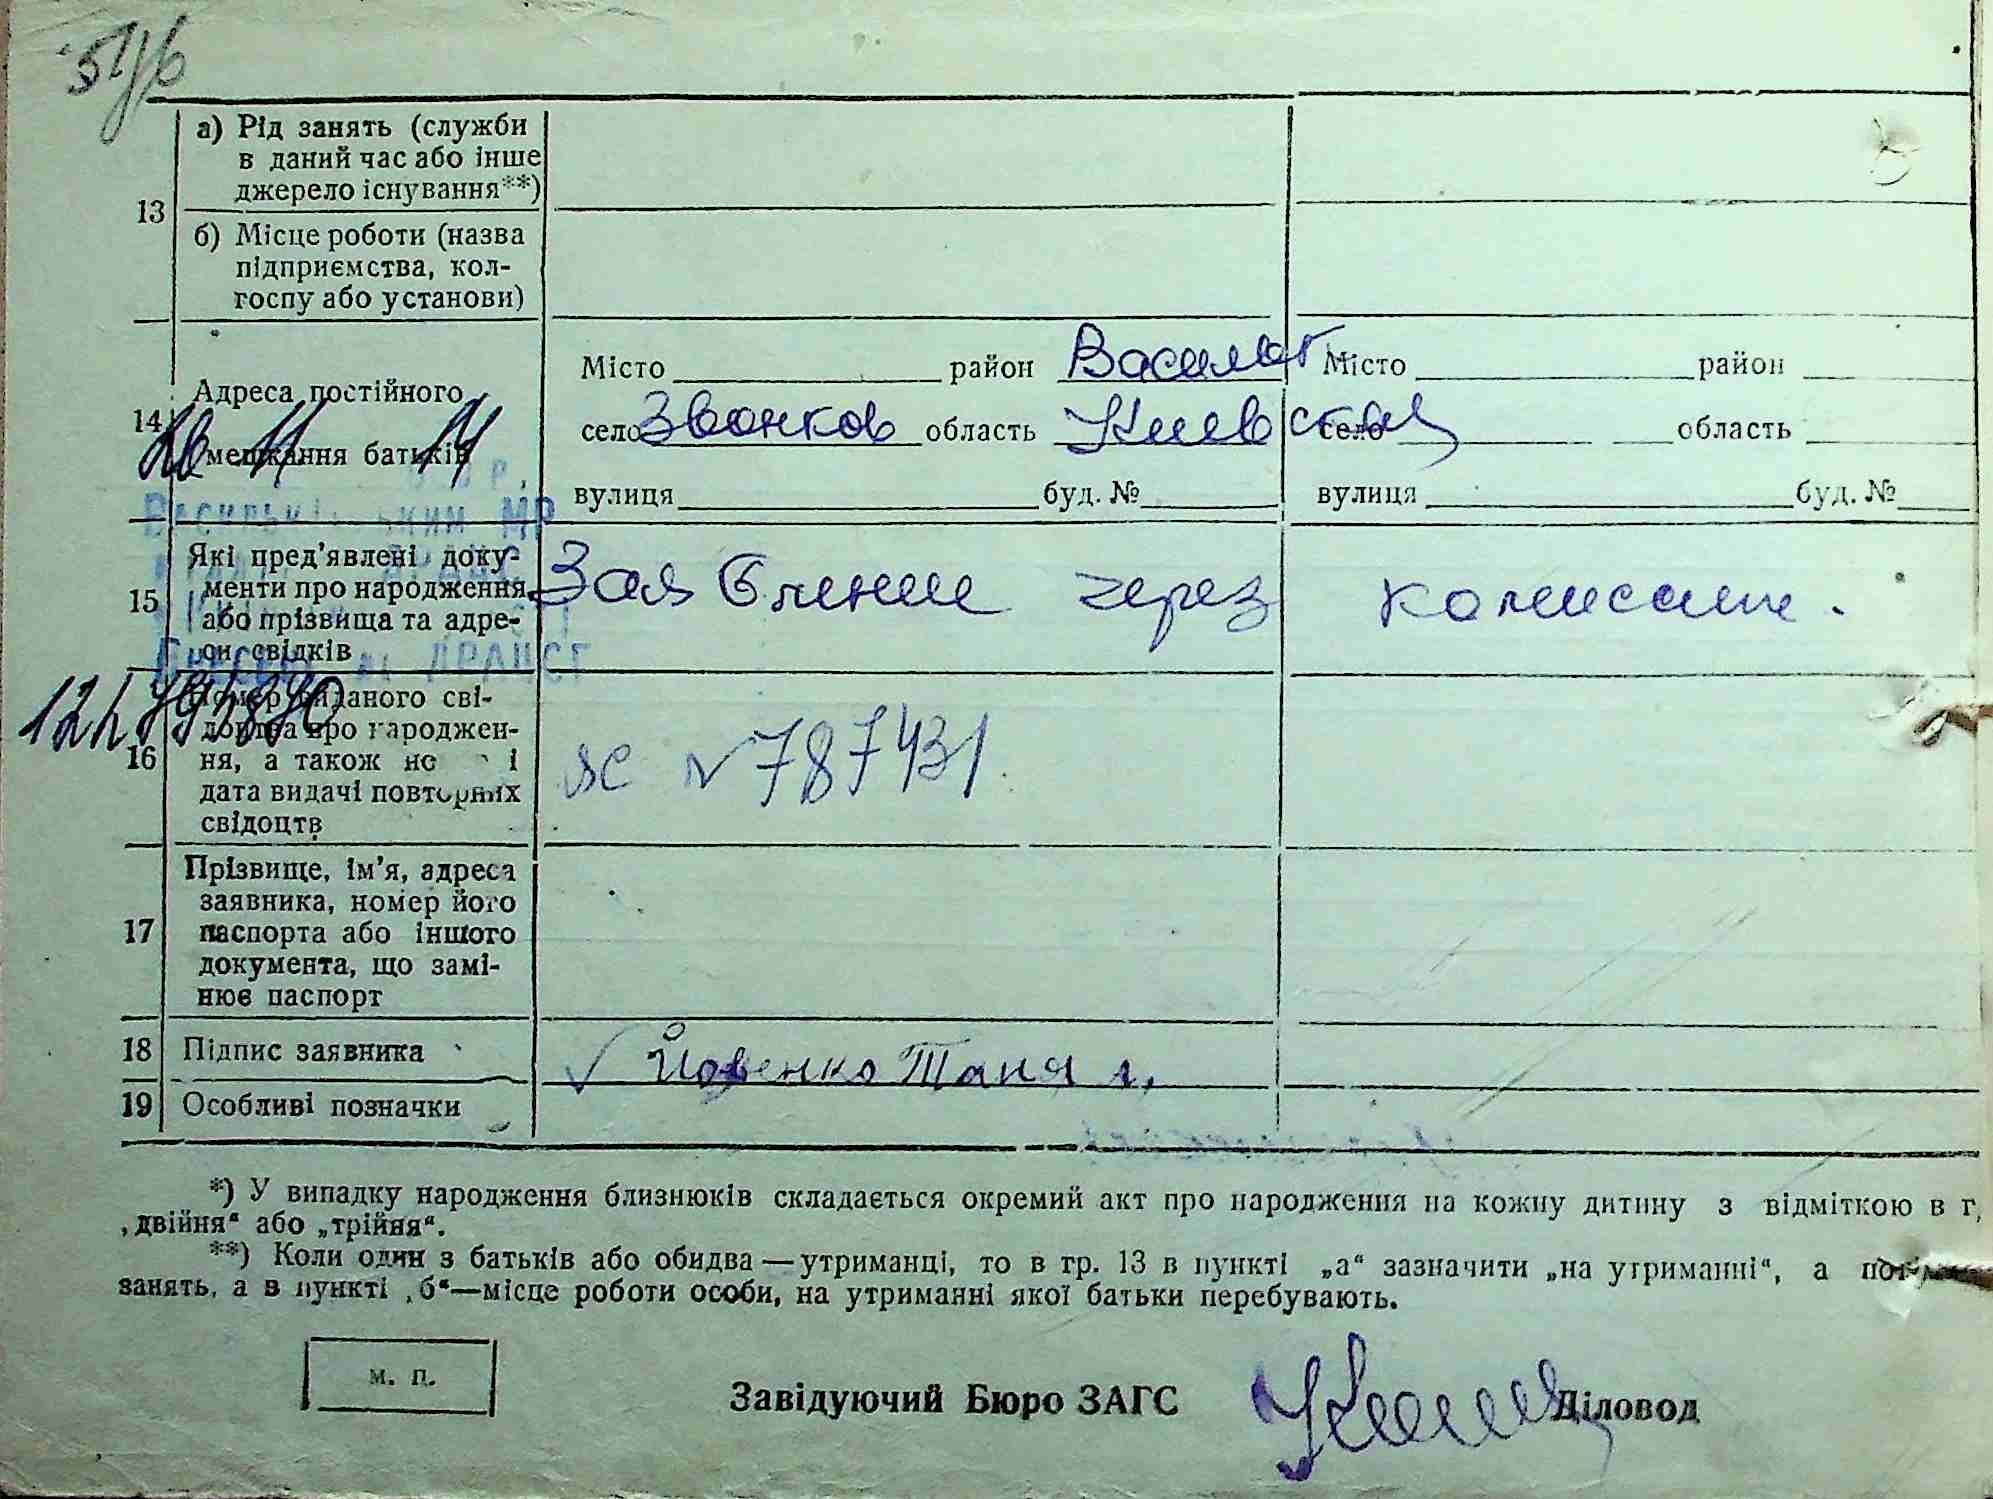 51/б
а) Рід занять (служби
в даний час або інше
джерело існування**)
13
б) Місце роботи (назва
підприємства, кол-
госпу або установи)
Місто район Василь Місто район
14 Адреса постійного
село Звонков область Киевская село область
мешкання батьків
вулиця буд. № вулиця буд. №
Васильківським МР
Які пред'явлені доку-
менти про народження
15 або прізвища та адре-
си свідків
Заявление через комиссию.
ДРАЦСГ
Номер виданого сві-
доцтва про народжен-
16 ня, а також но і
дата видачі повторних
свідоцтв
ЯС № 787431
Прізвище, ім'я, адреса
заявника, номер його
17 паспорта або іншого
документа, що замі-
нює паспорт
18 Підпис заявника Йовенко Таня
19 Особливі позначки
*) У випадку народження близнюків складається окремий акт про народження на кожну дитину з відміткою в г,
„двійня“ або „трійня“.
**) Коли один з батьків або обидва—утриманці, то в гр. 13 в пункті „а“ зазначити „на утриманні“, а
занять, а в пункті „б“—місце роботи особи, на утриманні якої батьки перебувають.
м. п.
Завідуючий Бюро ЗАГС Діловод